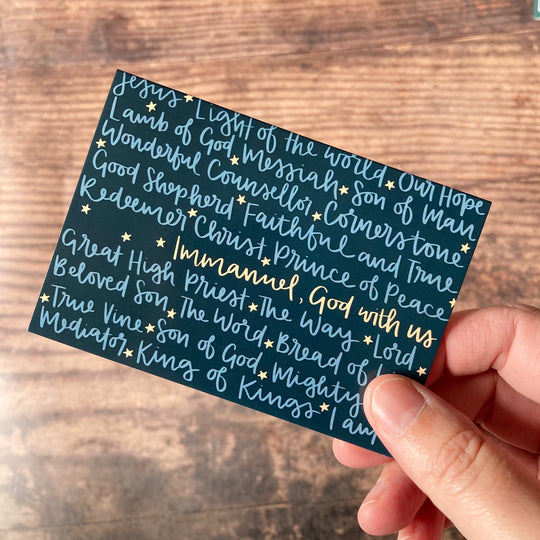 Jesus ★ Light of the world ★ Our Hope
Lamb of God ★ Messiah ★ Son of Man
Wonderful Counsellor ★ Cornerstone
Good Shepherd ★ Faithful and True
Redeemer ★ Christ ★ Prince of Peace
★ ★ ★ Immanuel, God with us
Great High Priest ★ The Way ★ Lord
Beloved Son ★ The Word ★ Bread of
★ True Vine ★ Son of God ★ Mighty
Mediator ★ King of Kings ★ I am